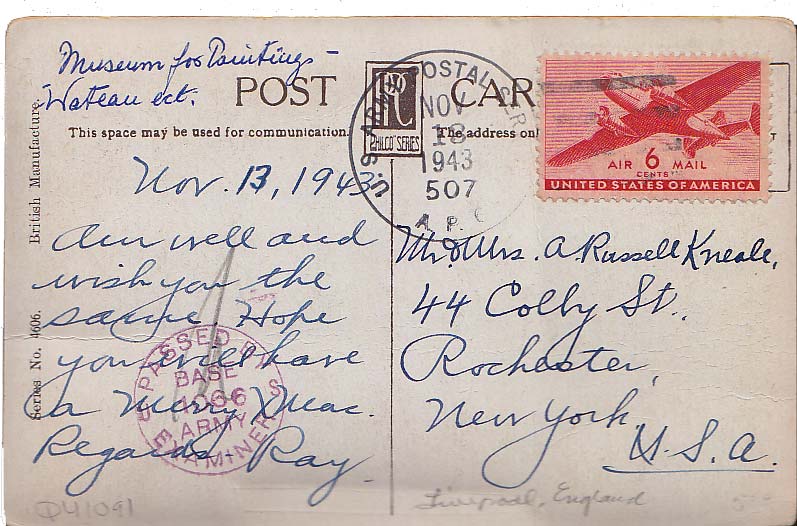 Museum for Paintings -
Wateau ect.
POST CAR
PC
PHILCO SERIES
This space may be used for communication.
The address onl
T
U.S. ARMY POSTAL SER
NOV
13
1943
507
A.P.
AIR 6 MAIL
CENTS
UNITED STATES OF AMERICA
British Manufacture.
Series No. 4606.
Nov. 13, 1943
Am well and
wish you the
same. Hope
you will have
a Merry Xmas.
Regards Ray
PASSED BY
BASE
1066
ARMY
EXAMINER
Mr. & Mrs. A. Russell Kneale,
44 Colby St.,
Rochester,
New York,
U.S.A.
Liverpool, England
D41091